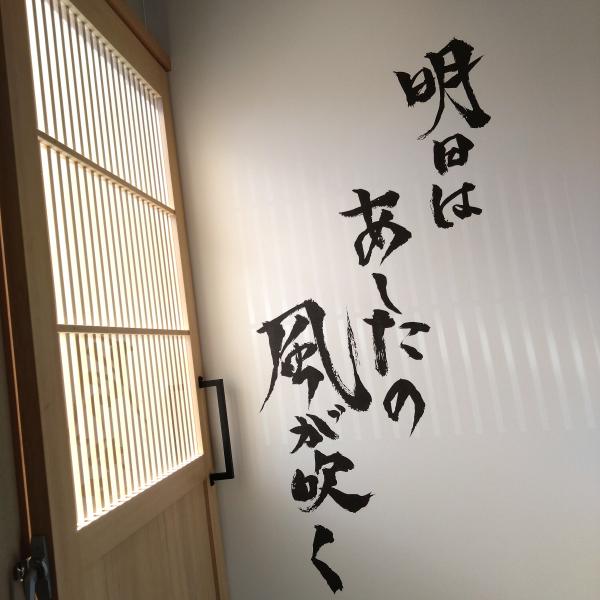 明日は
あしたの
風が吹く